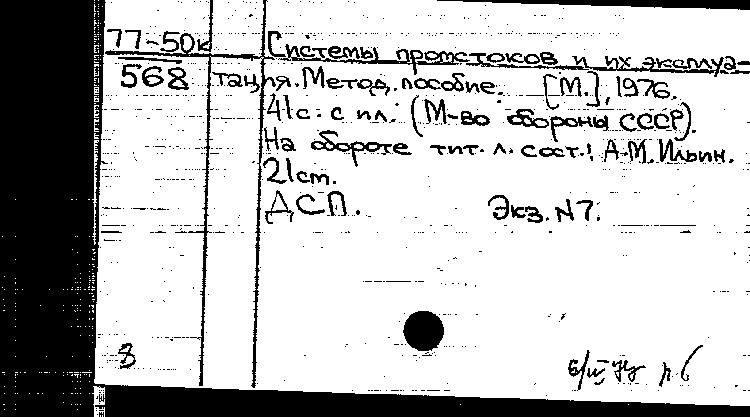 77-50к Системы промстоков и их эксплуа-
568 тация. Метод. пособие. [М.], 1976.
41с. с ил. (М-во обороны СССР).
На обороте тит. л. сост.: А.М. Ильин.
21см.
ДСП. Экз. N7.
8